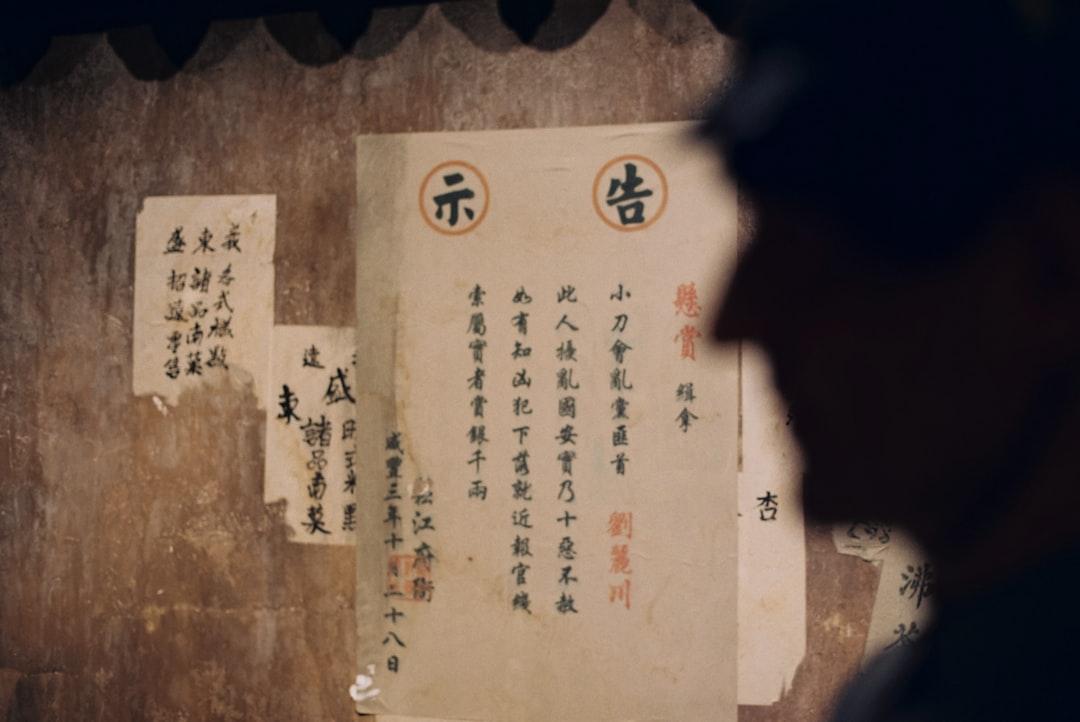 告示
懸賞 緝拿
小刀會亂黨匪首 劉麗川
此人擾亂國安實乃十惡不赦
如有知凶犯下落就近報官織
索屬實者賞銀千兩
松江府衙
咸豐三年十月二十八日
各式樣
東 諸品南菜
盛 招選零售
盛
諸品南菜
東
遠
杏